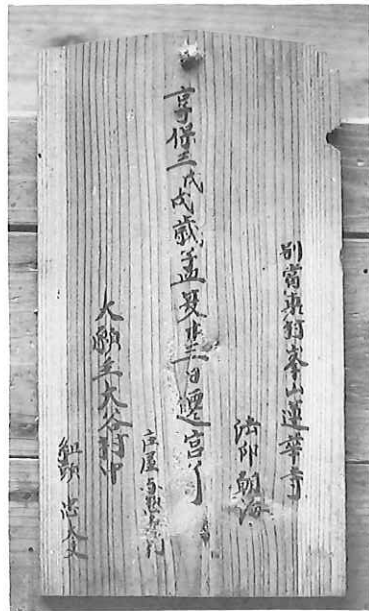 別當東峯山蓮華寺
法印朝海
享保三戊戌歳孟夏廿三日遷宮
庄屋
大願主大谷村中
組頭 忠太夫